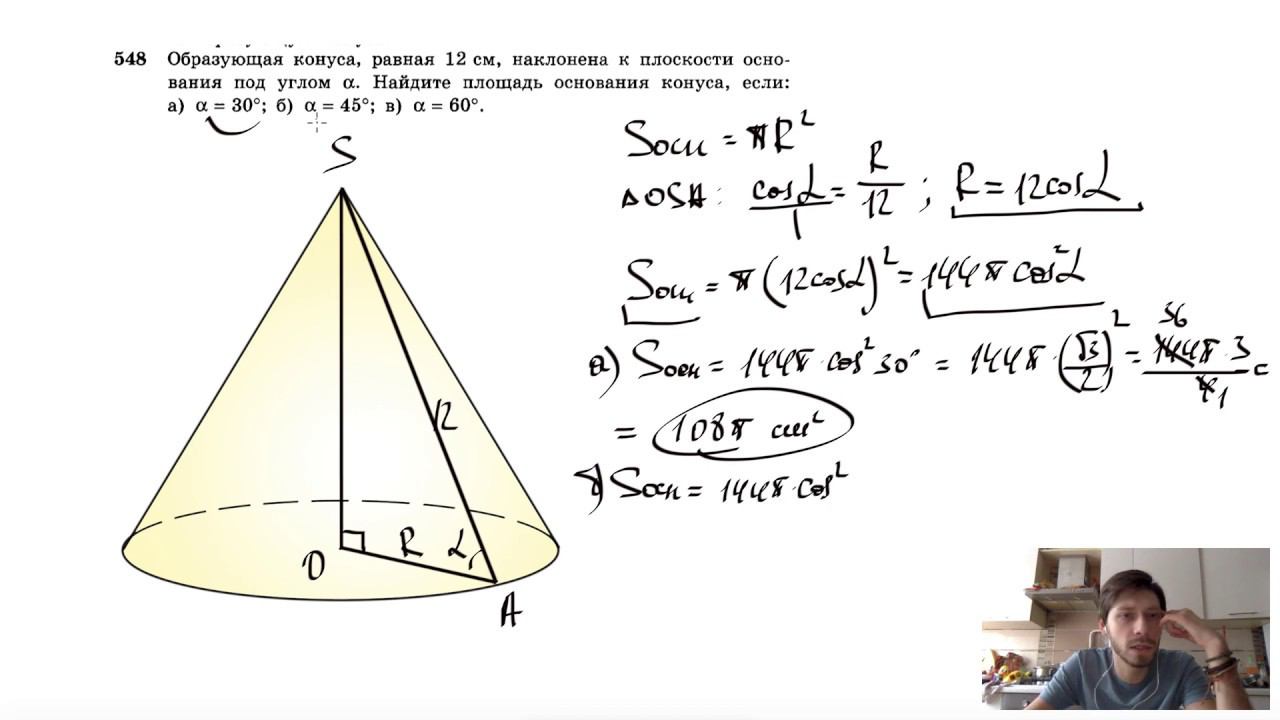 548 Образующая конуса, равная 12 см, наклонена к плоскости осно-
вания под углом α. Найдите площадь основания конуса, если:
а) α = 30°; б) α = 45°; в) α = 60°.
S
12
R α
O
A
Sосн = πR²
△OSA: cosα/1 = R/12 ; R = 12cosα
Sосн = π(12cosα)² = 144π cos²α
а) Sосн = 144π·cos²30° = 144π·(√3/2)² = 144π·3/4 =
36
1
= 108π см²
б) Sосн = 144π·cos²